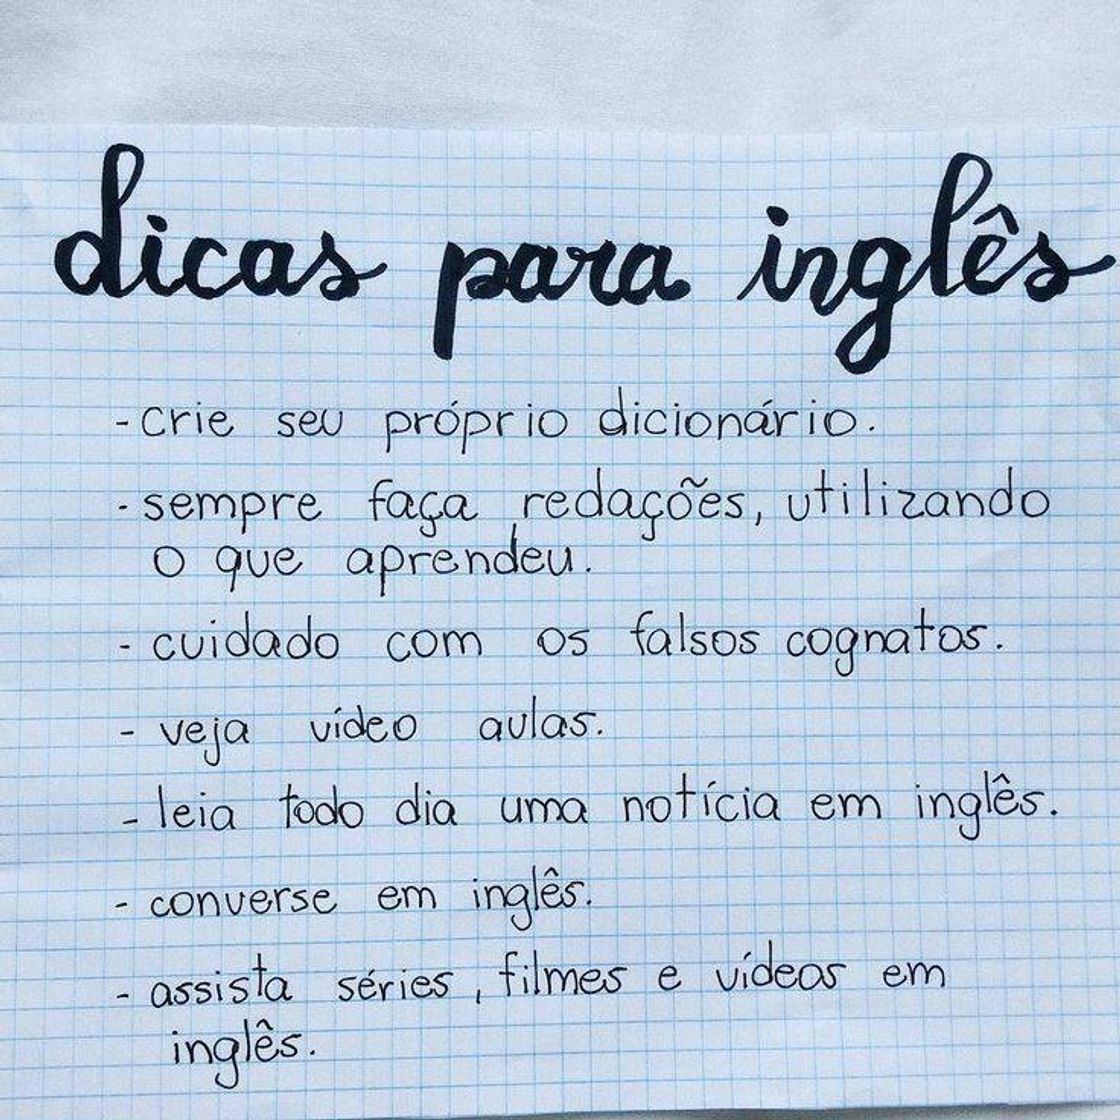 dicas para inglês
- crie seu próprio dicionário.
- sempre faça redações, utilizando
o que aprendeu.
- cuidado com os falsos cognatos.
- veja vídeo aulas.
- leia todo dia uma notícia em inglês.
- converse em inglês.
- assista séries, filmes e vídeos em
inglês.